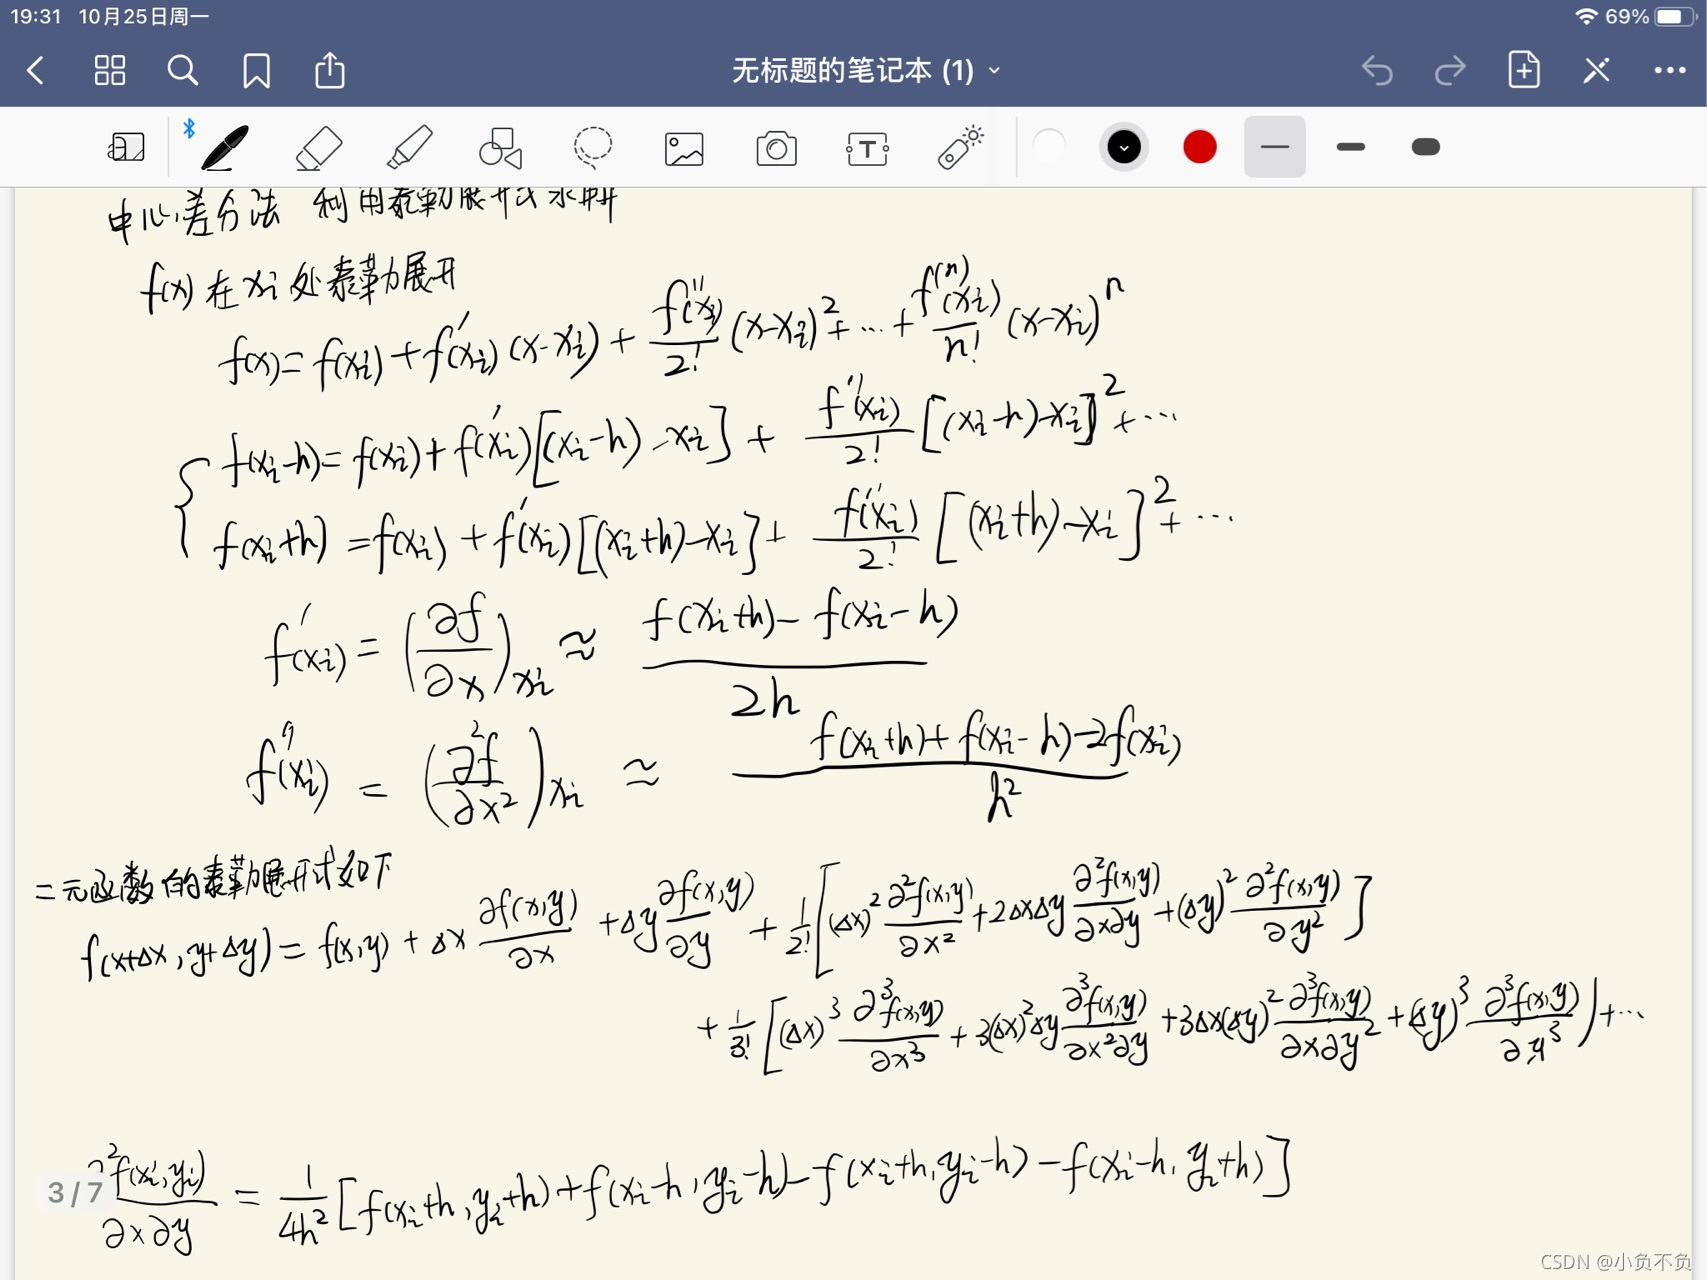 19:31 10月25日周一
69%
无标题的笔记本 (1)
中心差分法 利用泰勒展开式求解
f(x) 在 xi 处泰勒展开
f(x) = f(xi) + f'(xi)(x-xi) + f''(xi)/2! (x-xi)² + … + f⁽ⁿ⁾(xi)/n! (x-xi)ⁿ
f(xi-h) = f(xi) + f'(xi)[(xi-h)-xi] + f''(xi)/2! [(xi-h)-xi]² + …
f(xi+h) = f(xi) + f'(xi)[(xi+h)-xi] + f''(xi)/2! [(xi+h)-xi]² + …
f'(xi) = (∂f/∂x)xi ≈ f(xi+h) - f(xi-h) / 2h
f''(xi) = (∂²f/∂x²)xi ≈ f(xi+h) + f(xi-h) - 2f(xi) / h²
二元函数的泰勒展开式如下
f(x+Δx, y+Δy) = f(x,y) + Δx ∂f(x,y)/∂x + Δy ∂f(x,y)/∂y + 1/2! [(Δx)² ∂²f(x,y)/∂x² + 2ΔxΔy ∂²f(x,y)/∂x∂y + (Δy)² ∂²f(x,y)/∂y²]
+ 1/3! [(Δx)³ ∂³f(x,y)/∂x³ + 3(Δx)²Δy ∂³f(x,y)/∂x²∂y + 3Δx(Δy)² ∂³f(x,y)/∂x∂y² + (Δy)³ ∂³f(x,y)/∂y³] + …
∂²f(xi,yi)/∂x∂y = 1/4h² [f(xi+h, yi+h) + f(xi-h, yi-h) - f(xi+h, yi-h) - f(xi-h, yi+h)]
3 / 7
CSDN @小负不负